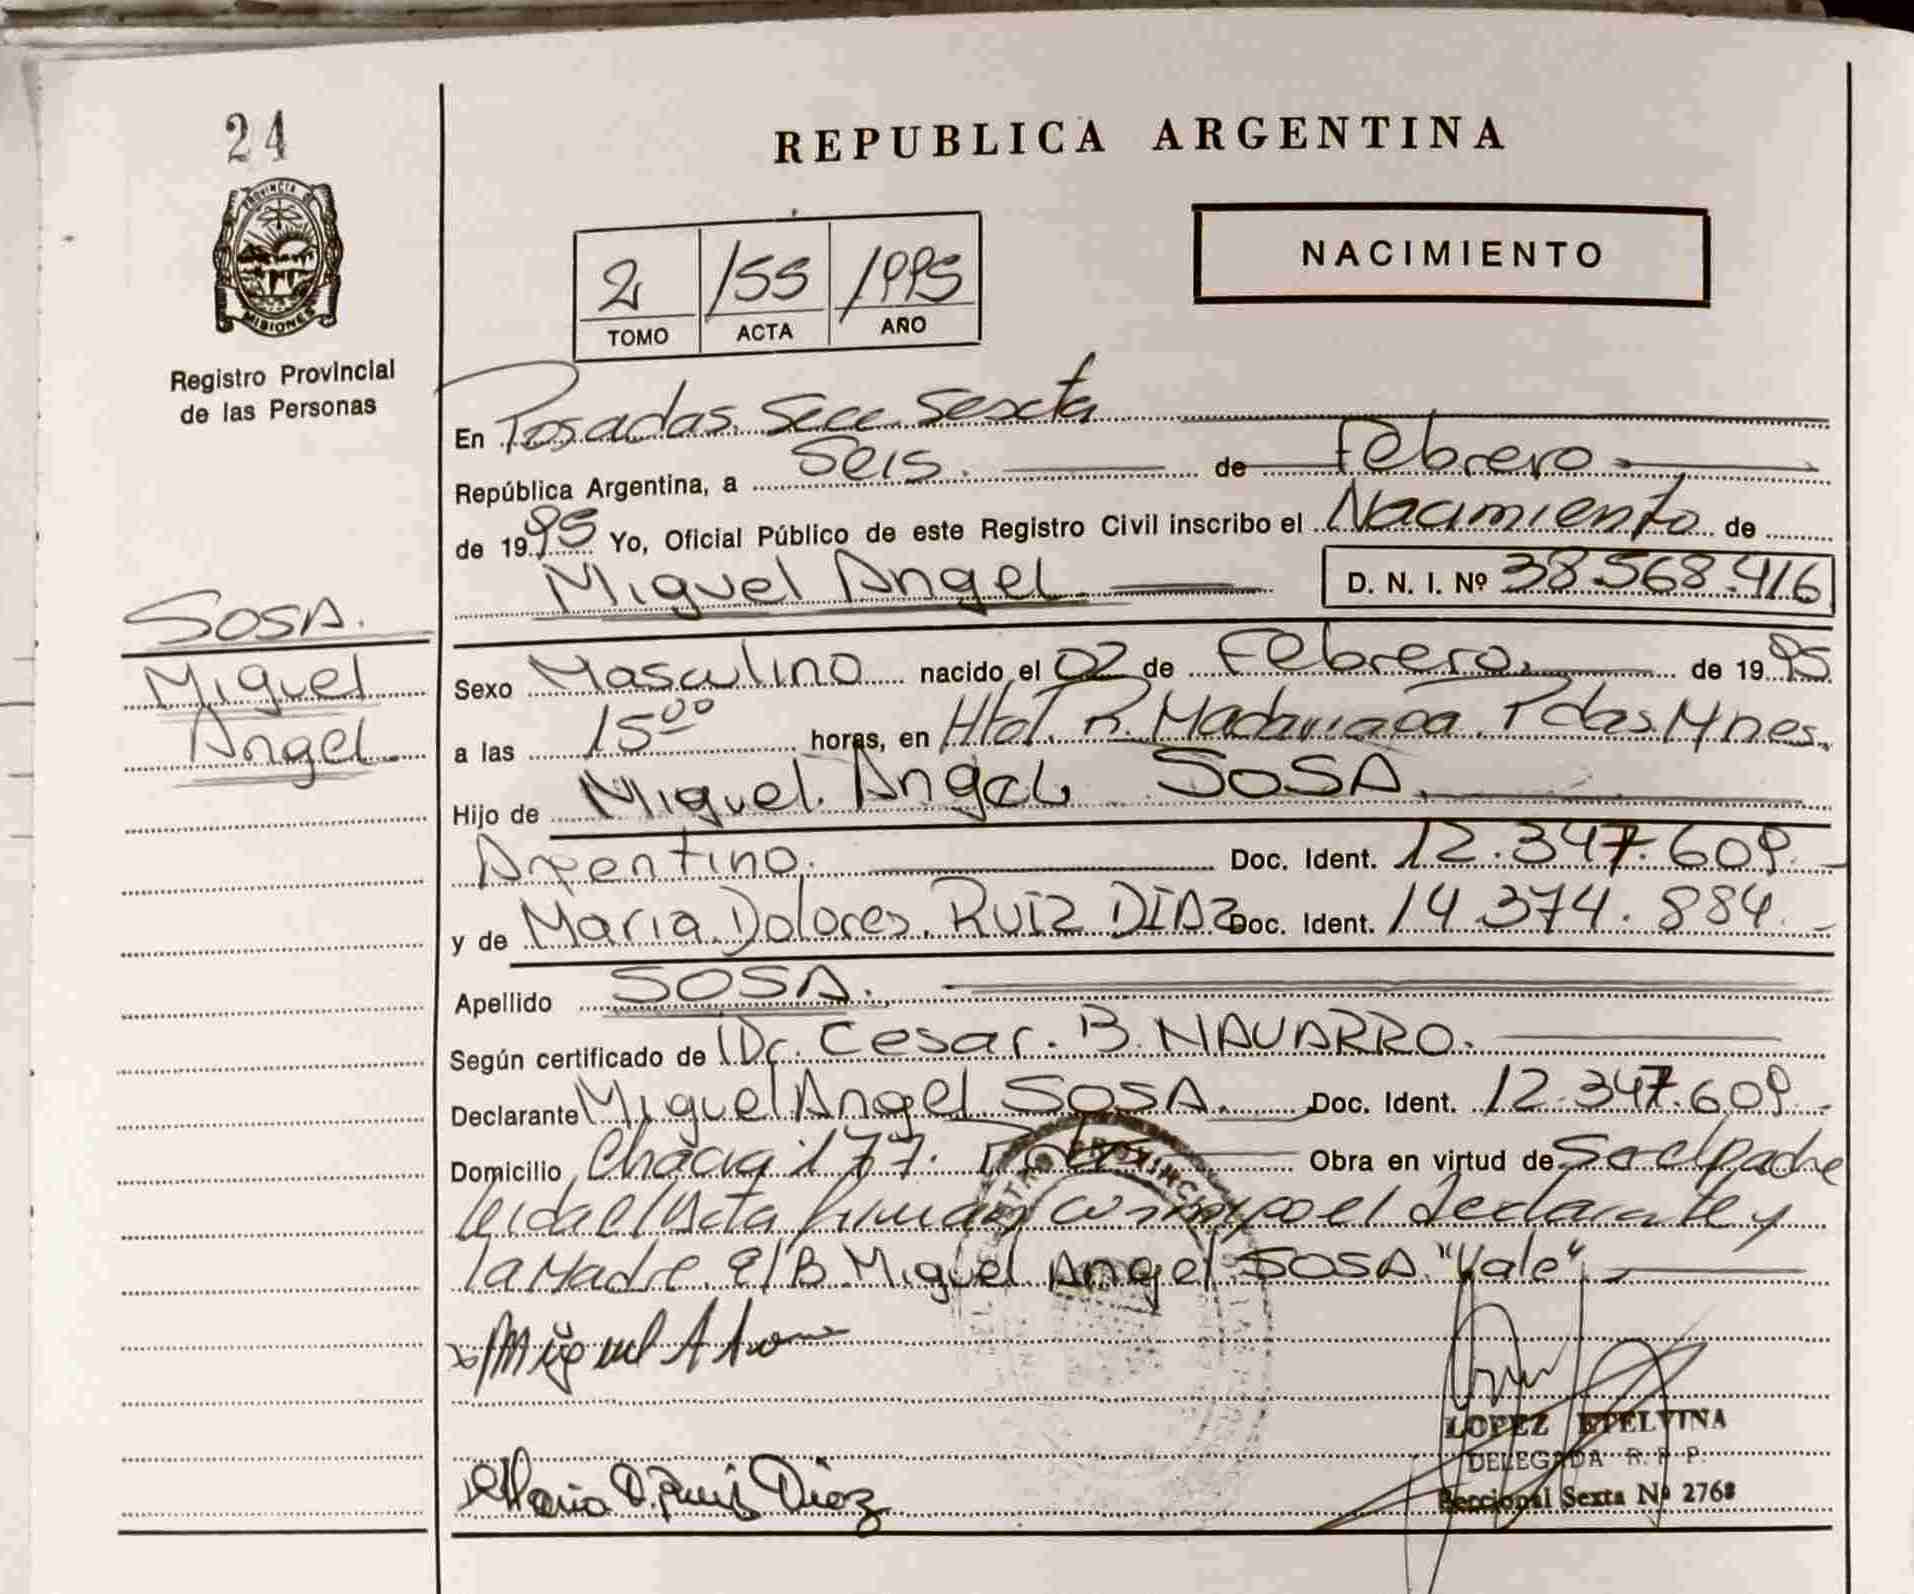 24
PROVINCIA DE
MISIONES
Registro Provincial
de las Personas
REPUBLICA ARGENTINA
NACIMIENTO
2 155 1995
TOMO ACTA AÑO
En Posadas. Secc. Sexcta
República Argentina, a Seis. de Febrero.
de 1995 Yo, Oficial Público de este Registro Civil inscribo el Nacimiento de
Miguel Angel D. N. I. Nº 38.568.416
SOSA.
Miguel
Angel
Sexo Masculino nacido el 02 de Febrero. de 1995
a las 1500 horas, en Htal. R. Madariaga. Pdas. Mnes.
Hijo de Miguel. Angel SOSA.
Argentino. Doc. Ident. 12.347.609.
y de Maria Dolores. RUIZ DIAZ Doc. Ident. 14.374.884.
Apellido SOSA.
Según certificado de Dr. Cesar. B. NAVARRO.
Declarante Miguel Angel SOSA. Doc. Ident. 12.347.609.
Domicilio Chacra 177. Obra en virtud de Ser el padre
leida el Acta firman conmigo el declarante y
la Madre. E/B Miguel Angel SOSA. "Vale"
Miguel A
Maria D. Ruiz Diaz
LOPEZ ETELVINA
DELEGADA R. P. P.
Seccional Sexta Nº 2768